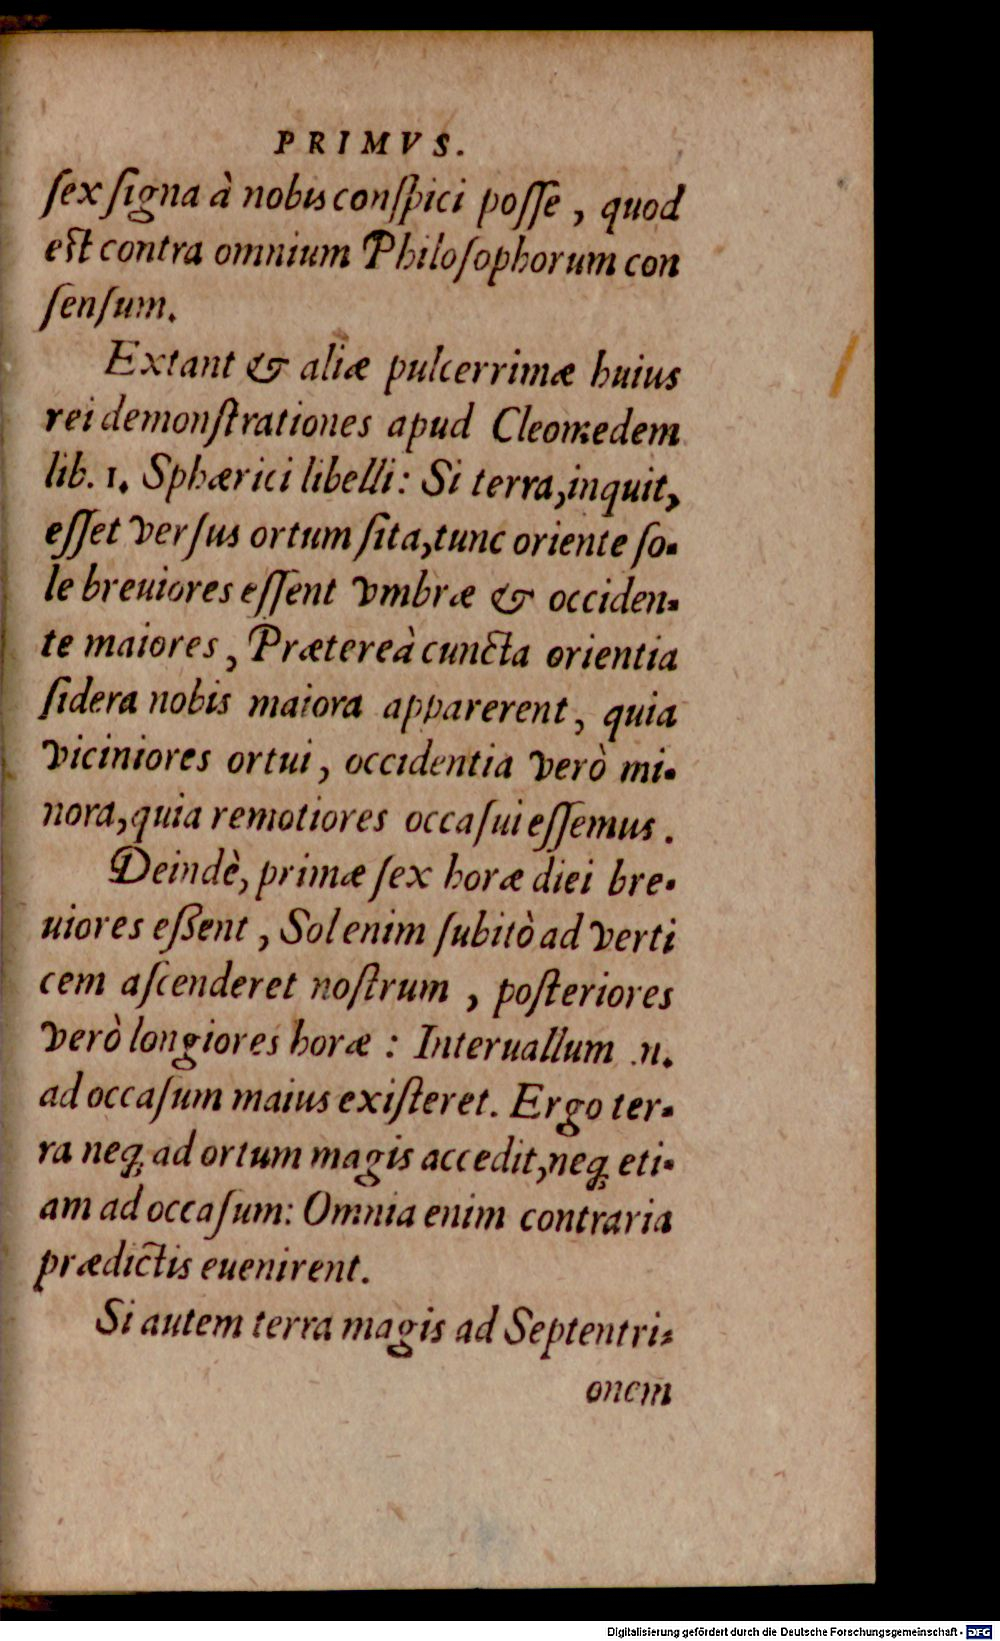 PRIMVS.
sex signa à nobis conspici posse, quod
est contra omnium Philosophorum con
sensum.
Extant & aliæ pulcerrimæ huius
rei demonstrationes apud Cleomedem
lib. 1. Sphærici libelli: Si terra, inquit,
esset versus ortum sita, tunc oriente so-
le breuiores essent vmbræ & occiden-
te maiores, Prætereà cuncta orientia
sidera nobis maiora apparerent, quia
viciniores ortui, occidentia verò mi-
nora, quia remotiores occasui essemus.
Deindè, primæ sex horæ diei bre-
uiores eßent, Sol enim subitò ad verti
cem ascenderet nostrum, posteriores
verò longiores horæ: Interuallum .n.
ad occasum maius existeret. Ergo ter-
ra neq; ad ortum magis accedit, neq; eti-
am ad occasum: Omnia enim contraria
prædictis euenirent.
Si autem terra magis ad Septentri-
onem
Digitalisierung gefördert durch die Deutsche Forschungsgemeinschaft - DFG